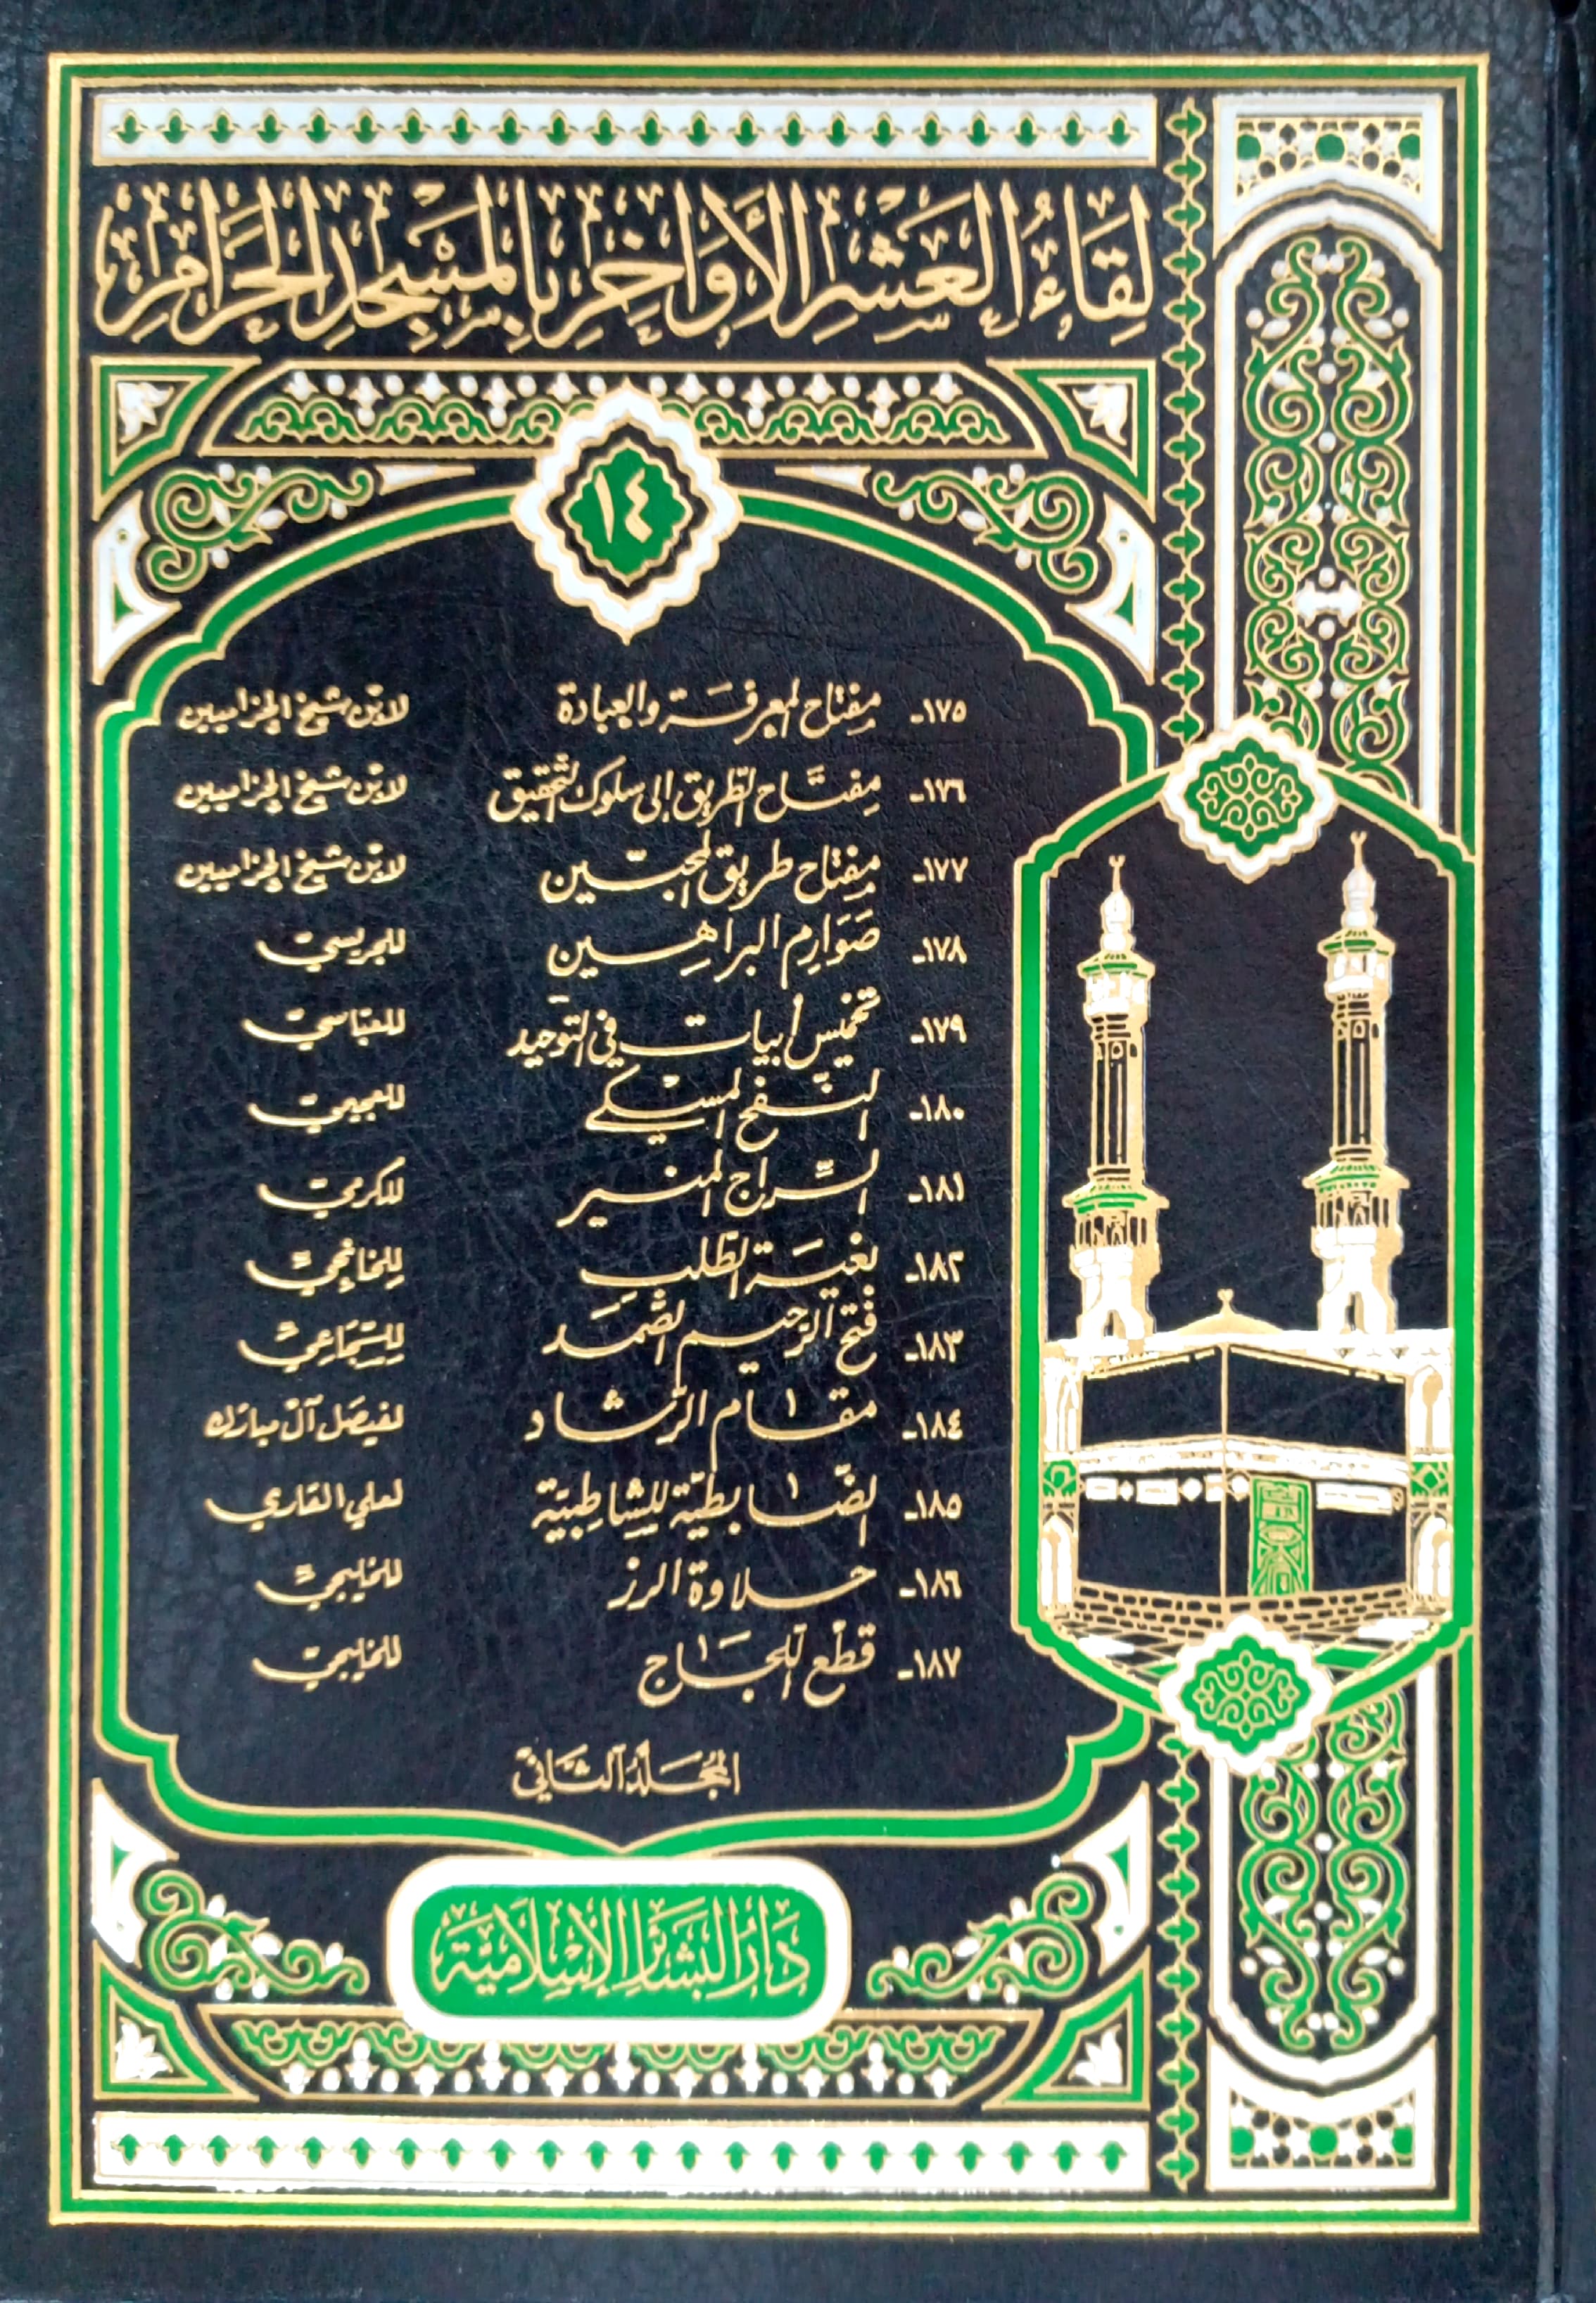 لِقَاءُ العَشْرِ الأَوَاخِرِ بِالمَسْجِدِ الحَرَامِ
١٤
١٧٥- مِفتاح المعرفَة والعبادة لابن شيخ الحزاميين
١٧٦- مِفتَاح الطّريق إلى سلوك التّحقيق لابن شيخ الحزاميين
١٧٧- مِفتاح طريق المحبّين لابن شيخ الحزاميين
١٧٨- صَوَارِم البَراهِين للبريسيّ
١٧٩- تخميس أبيات في التوحيد للعبّاسيّ
١٨٠- النّفح المِسْكي للعجيميّ
١٨١- السِّراج المنير للكرميّ
١٨٢- بغيَة الطّلب للخانجيّ
١٨٣- فَتح الرّحيم الصَّمَد للسِّجَاعِيّ
١٨٤- مقام الرّشاد لفيصَل آل مبارك
١٨٥- الضّابطيّة للشّاطِبيّة لعلي القاري
١٨٦- حلاوة الرز للخليجيّ
١٨٧- قطْع اللّجَاج للخليجيّ
المُجَلّدُ الثَّاني
دَارُ البَشَائِرِ الإِسْلَامِيَّةِ